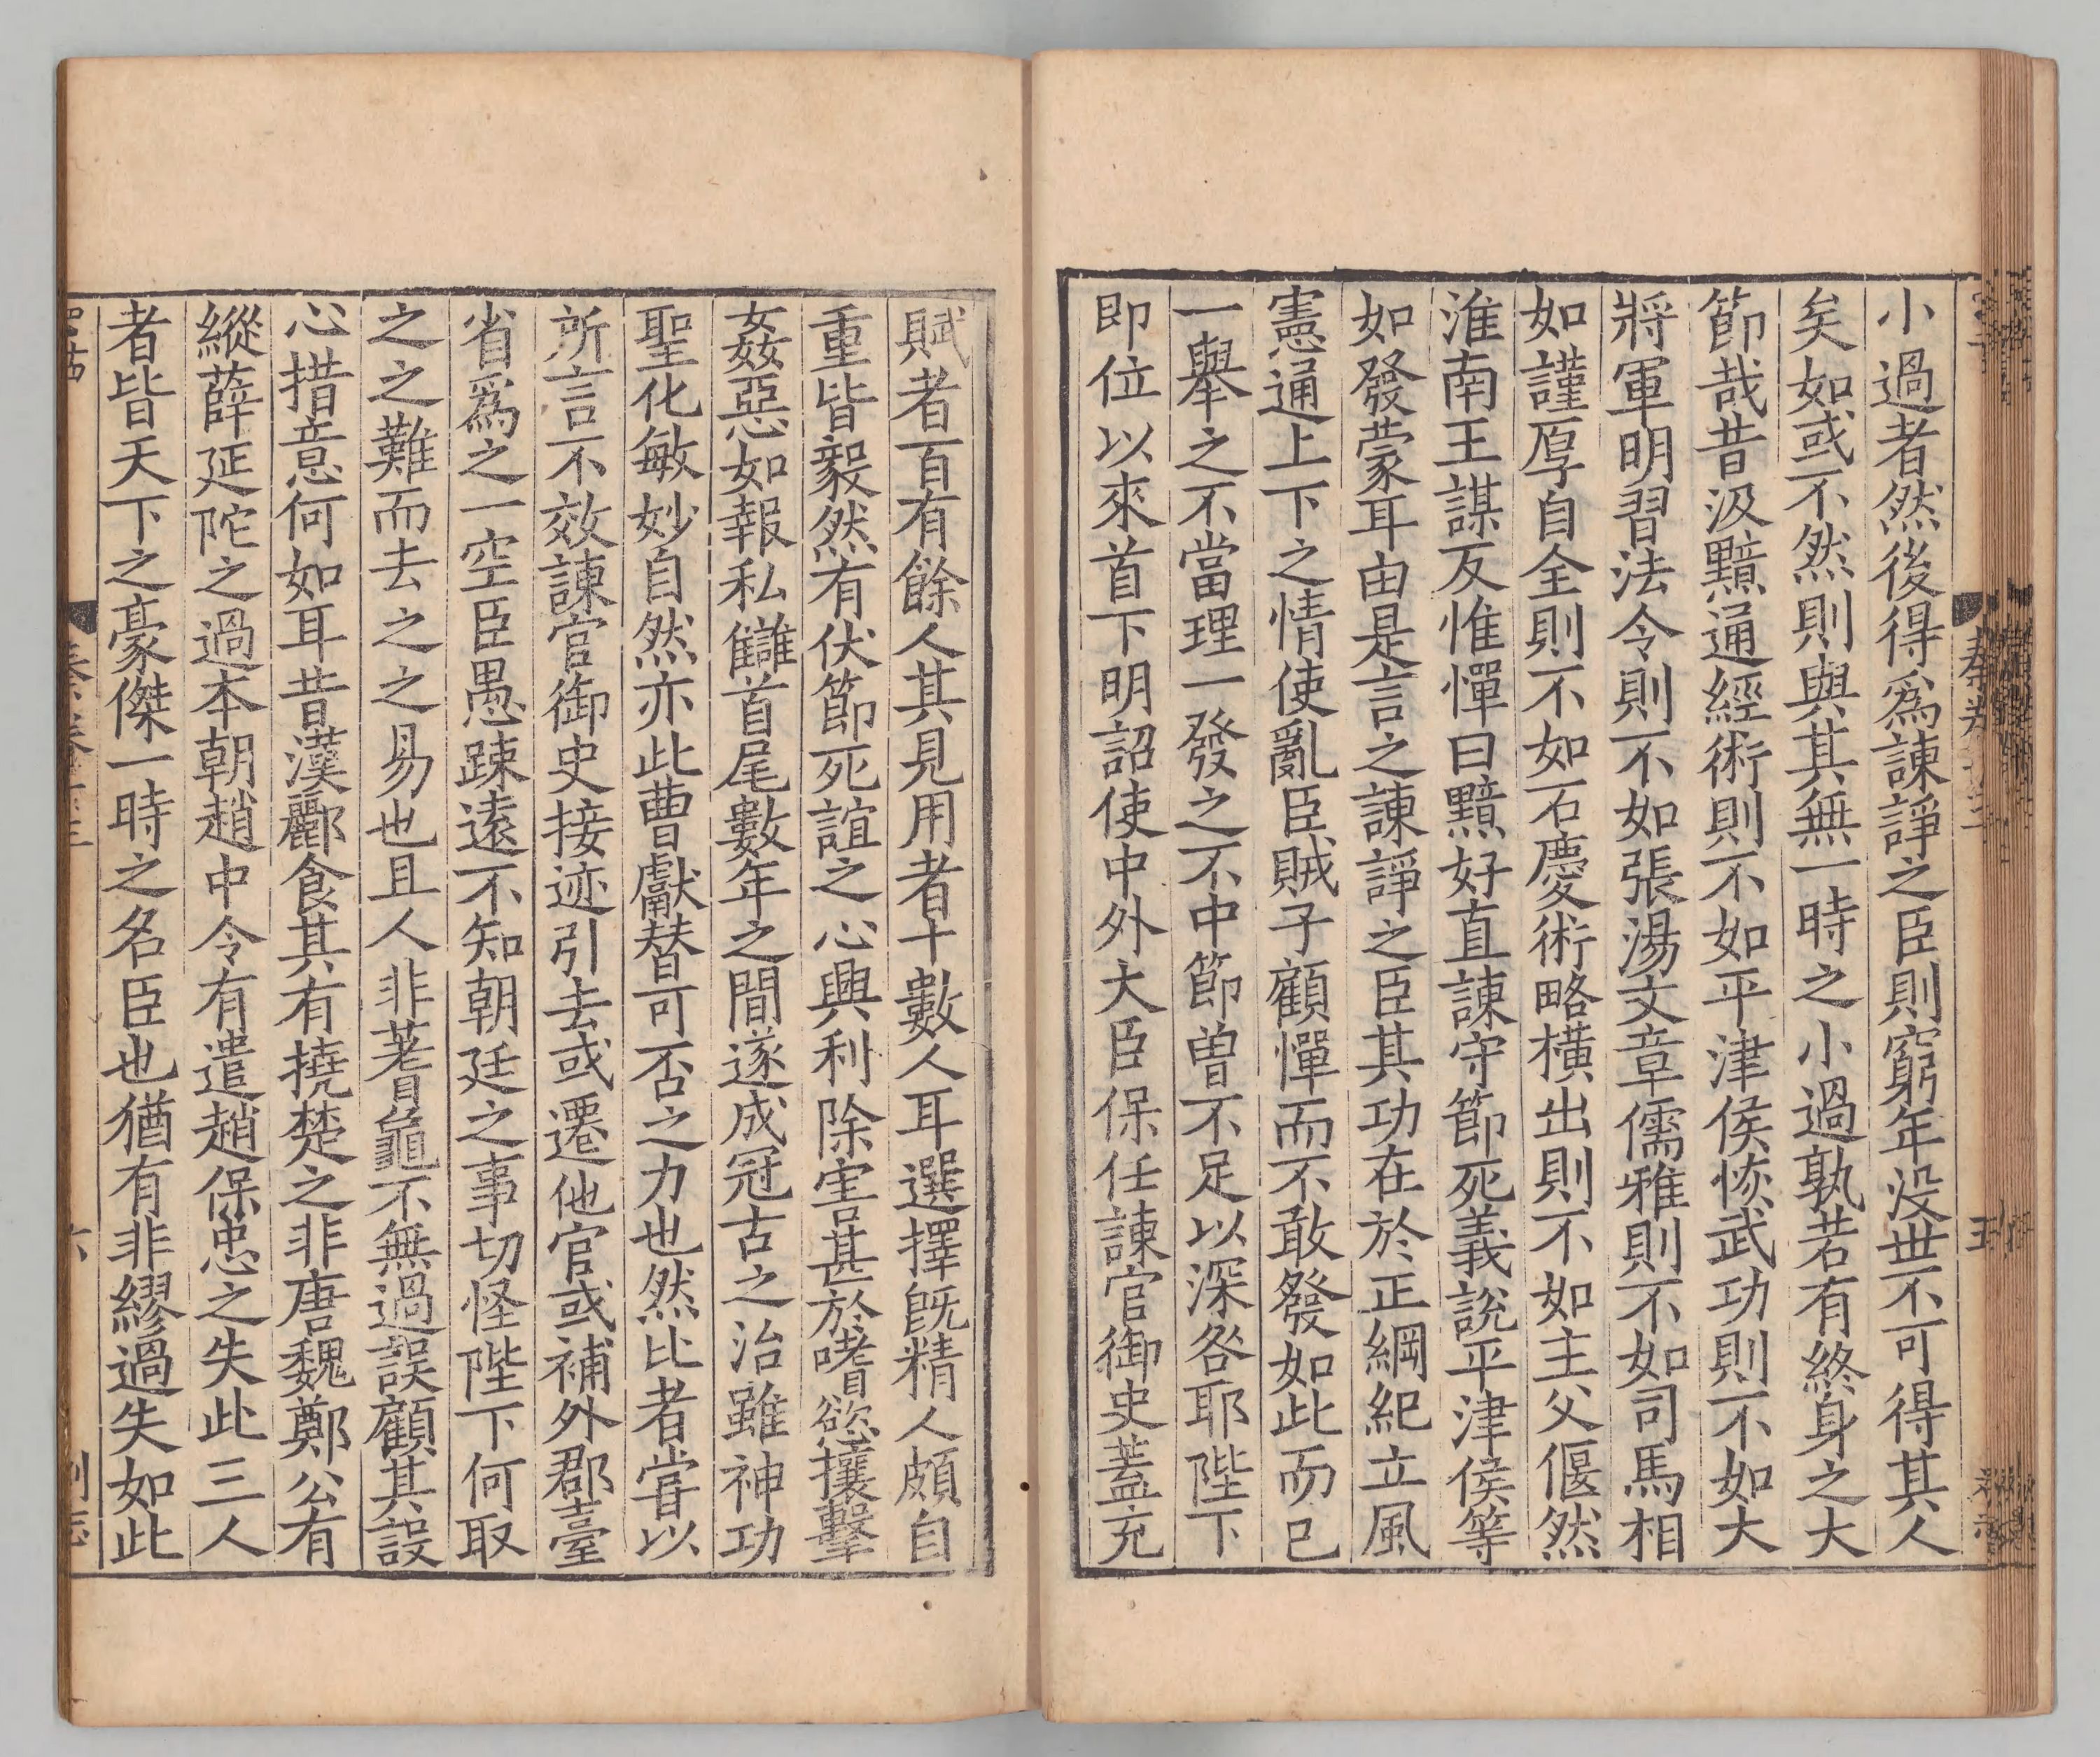 小過者然後得爲諫諍之臣則窮年没世不可得其人
矣如或不然則與其無一時之小過孰若有終身之大
節哉昔汲黯通經術則不如平津侯恢武功則不如大
將軍明習法令則不如張湯文章儒雅則不如司馬相
如謹厚自全則不如石慶術略橫出則不如主父偃然
淮南王謀反惟憚曰黯好直諫守節死義說平津侯等
如發蒙耳由是言之諫諍之臣其功在於正綱紀立風
憲通上下之情使亂臣賊子顧憚而不敢發如此而已
一舉之不當理一發之不中節曽不足以深咎耶陛下
即位以來首下明詔使中外大臣保任諫官御史蓋充
賦者百有餘人其見用者十數人耳選擇旣精人頗自
重皆毅然有伏節死誼之心興利除害甚於嗜慾攘擊
姦惡如報私讎首尾數年之間遂成冠古之治雖神功
聖化敏妙自然亦此曹獻替可否之力也然比者嘗以
所言不效諫官御史接迹引去或遷他官或補外郡臺
省爲之一空臣愚踈遠不知朝廷之事切怪陛下何取
之之難而去之之易也且人非蓍龜不無過誤顧其設
心措意何如耳昔漢酈食其有撓楚之非唐魏鄭公有
縱薛延陀之過本朝趙中令有遣趙保忠之失此三人
者皆天下之豪傑一時之名臣也猶有非繆過失如此